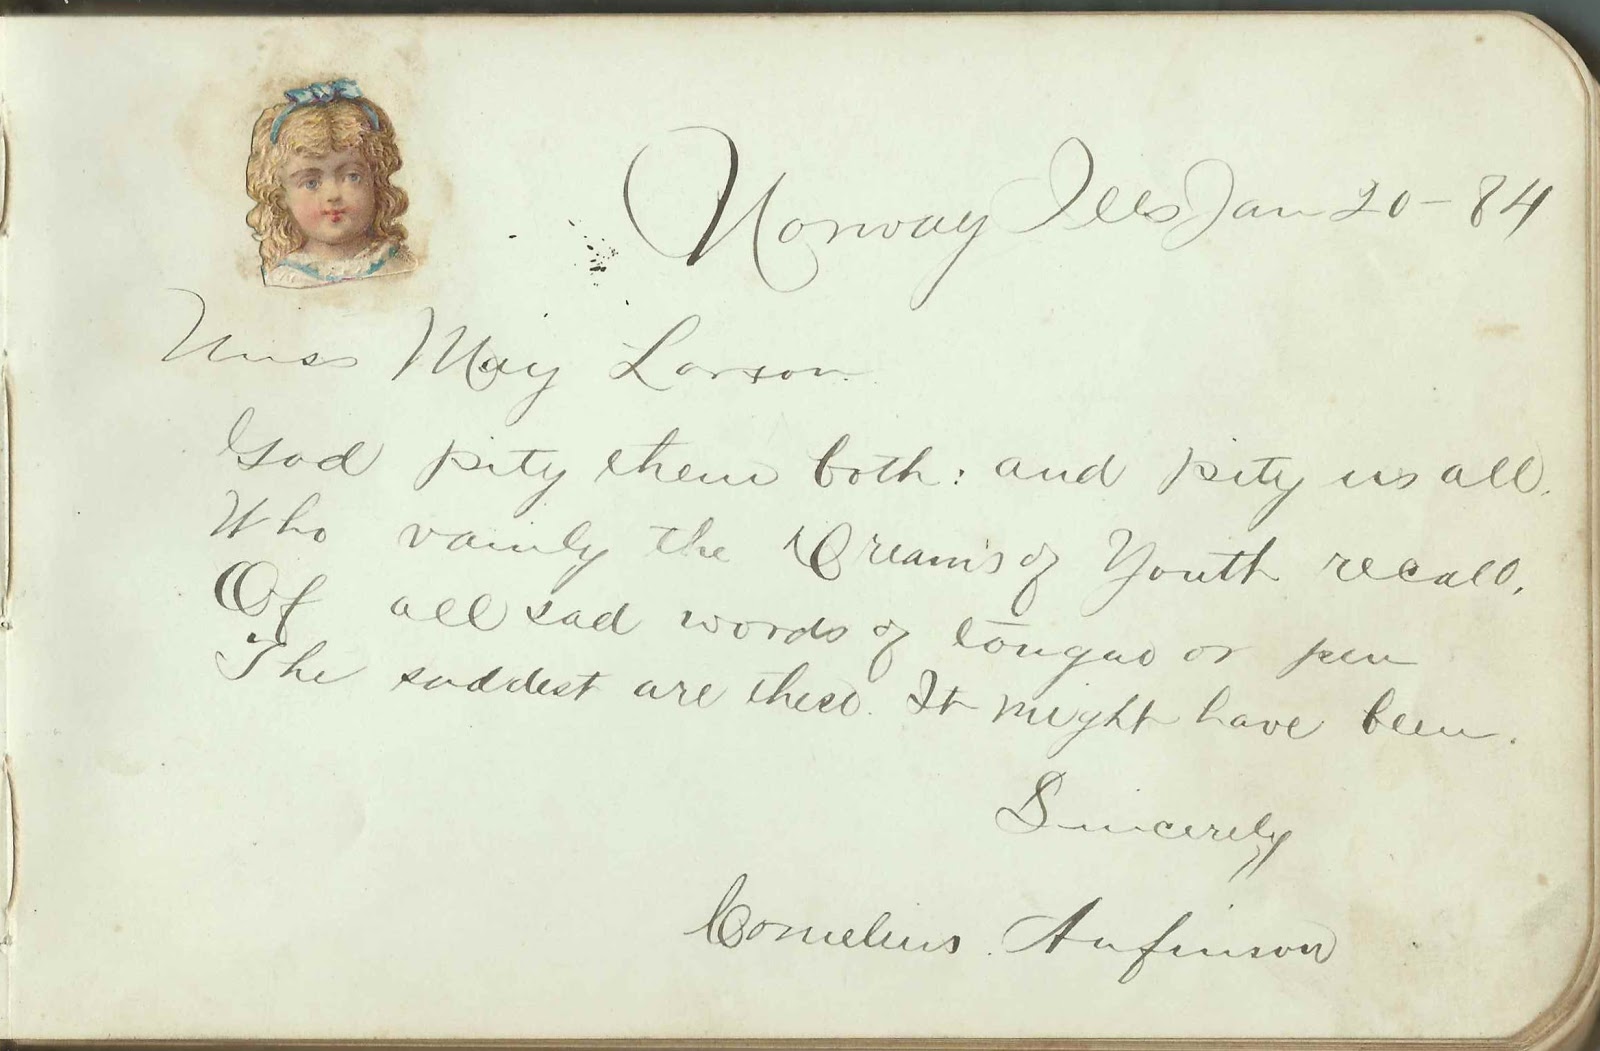 Norway Ills Jan 20-84
Miss May Larson.
God pity them both: and pity us all.
Who vainly the Dreams of Youth recall,
Of all sad words of tongue or pen
The saddest are these. It might have been.
Sincerely
Cornelius. Anfinson